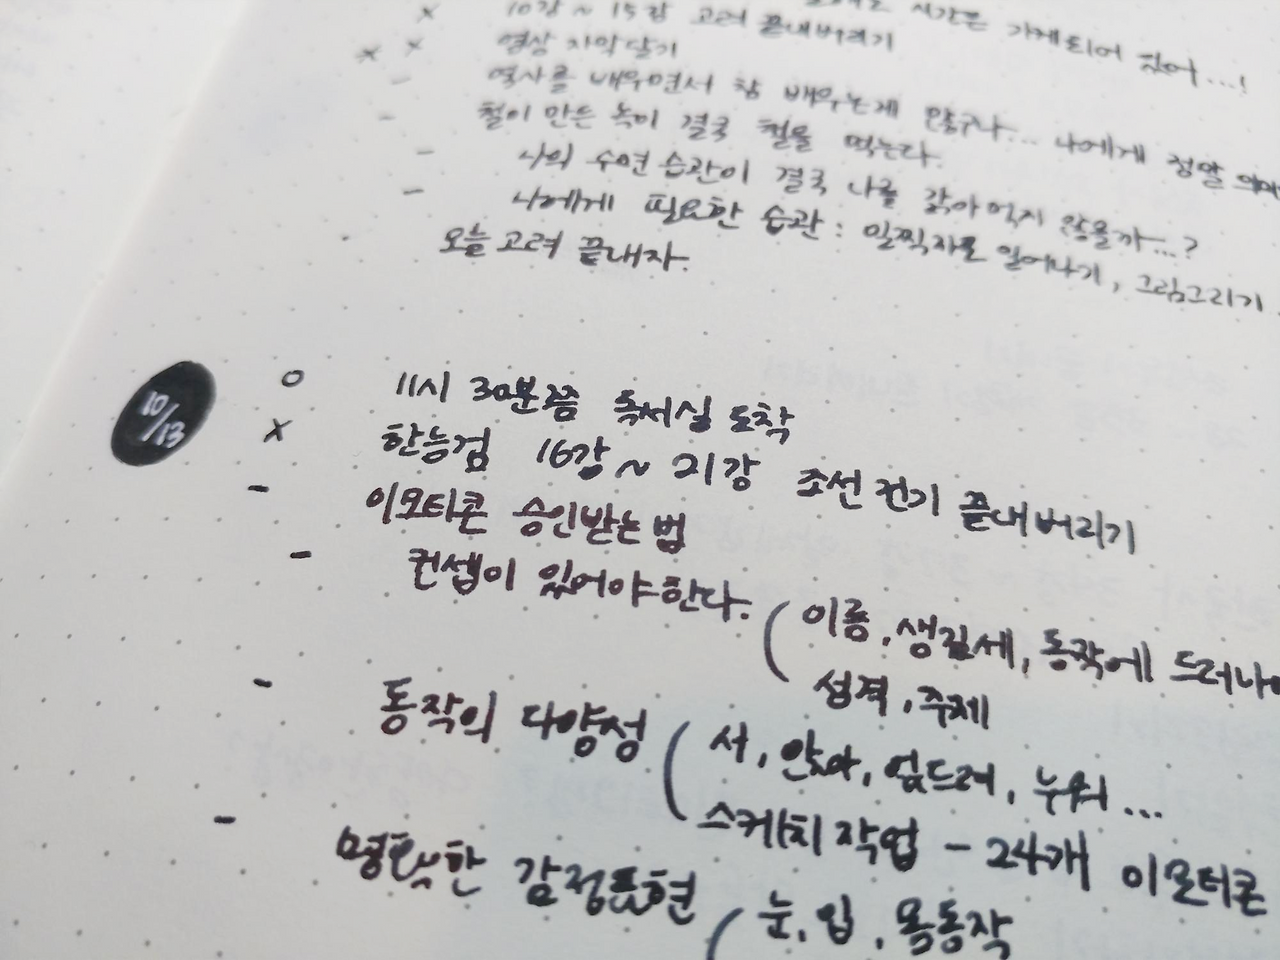 시간은 가게되어 있어...!
x 10강 ~ 15강 고려 끝내버리기
x x 영상 자막달기
- 역사를 배우면서 참 배우는게 많구나... 나에게 정말
- 철이 만든 녹이 결국 철을 먹는다.
- 나의 수면 습관이 결국 나를 갉아먹지 않을까...?
- 나에게 필요한 습관 : 일찍자고 일어나기, 그림그리기
오늘 고려 끝내자.
10/13
o 11시 30분쯤 독서실 도착
x 한능검 16강 ~ 21강 조선 전기 끝내버리기
- 이모티콘 승인받는 법
- 컨셉이 있어야 한다. ( 이름, 생김새, 동작에 드러나
성격, 주제
- 동작의 다양성 ( 서, 앉아, 엎드려, 누워...
스케치 작업 - 24개 이모티콘
- 명확한 감정표현 ( 눈, 입, 몸동작